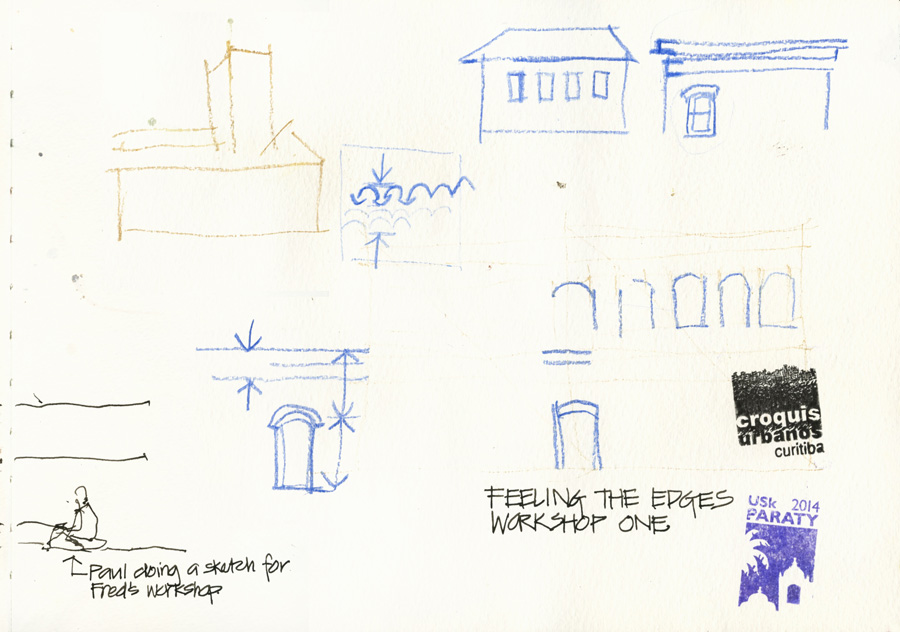 croquis
urbanos
curitiba
FEELING THE EDGES
WORKSHOP ONE
USK 2014
PARATY
Paul doing a sketch for
Fred's workshop